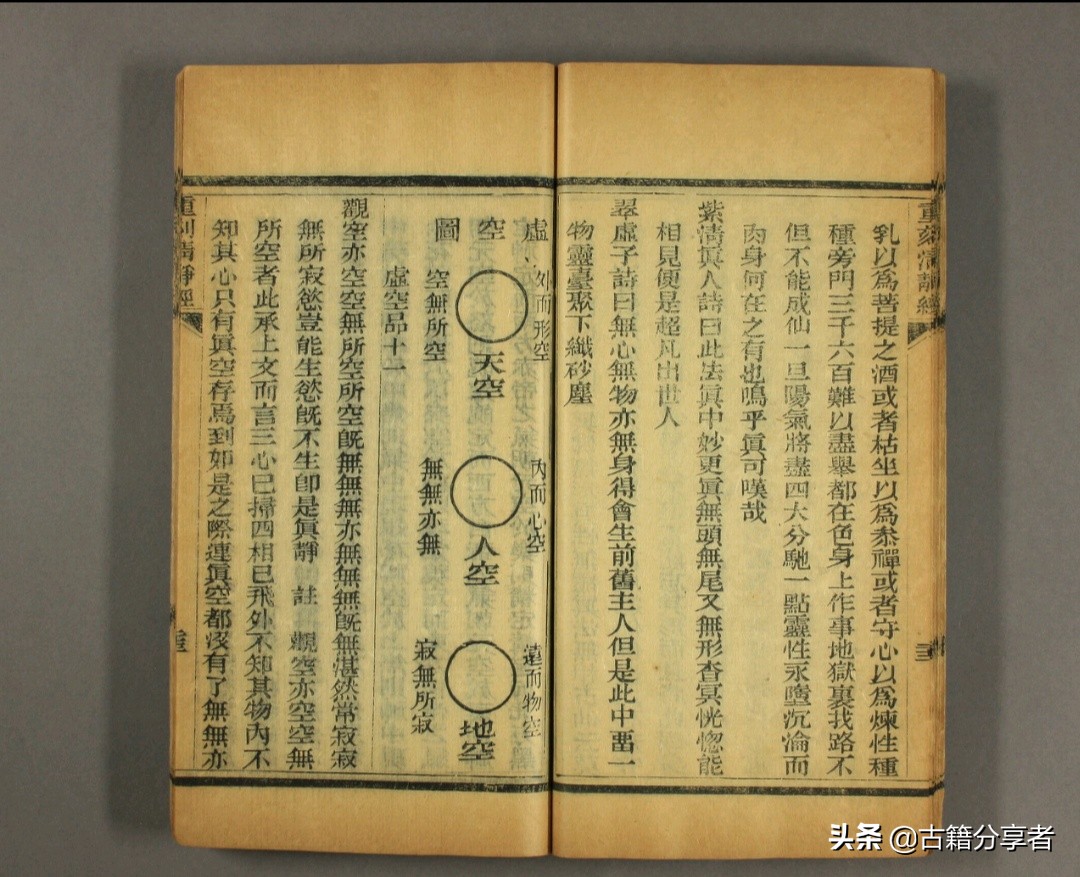 重刻清靜經
乳以爲菩提之酒或者枯坐以爲叅禪或者守心以爲煉性種
種旁門三千六百難以盡舉都在色身上作事地獄裏找路不
但不能成仙一旦陽氣將盡四大分馳一點靈性永墮沉淪而
肉身何在之有也嗚乎眞可嘆哉
紫淸眞人詩曰此法眞中妙更眞無頭無尾又無形杳冥恍惚能
相見便是超凡出世人
翠虛子詩曰無心無物亦無身得會生前舊主人但是此中畱一
物靈臺聚下纖砂塵
虛空圖
外而形空
天空
空無所空
內而心空
人空
無無亦無
遠而物空
地空
寂無所寂
虛空品十一
觀空亦空空無所空所空旣無無無亦無無無旣無湛然常寂寂
無所寂慾豈能生慾旣不生卽是眞靜 註 觀空亦空空無
所空者此承上文而言三心已掃四相已飛外不知其物內不
知其心只有眞空存焉到如是之際連眞空都沒有了無無亦
重刻清靜經
头条 @古籍分享者